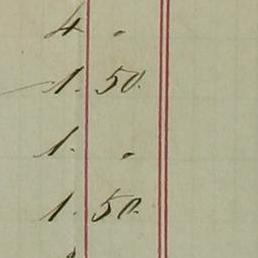 4 .
1. 50.
1. .
1. 50.